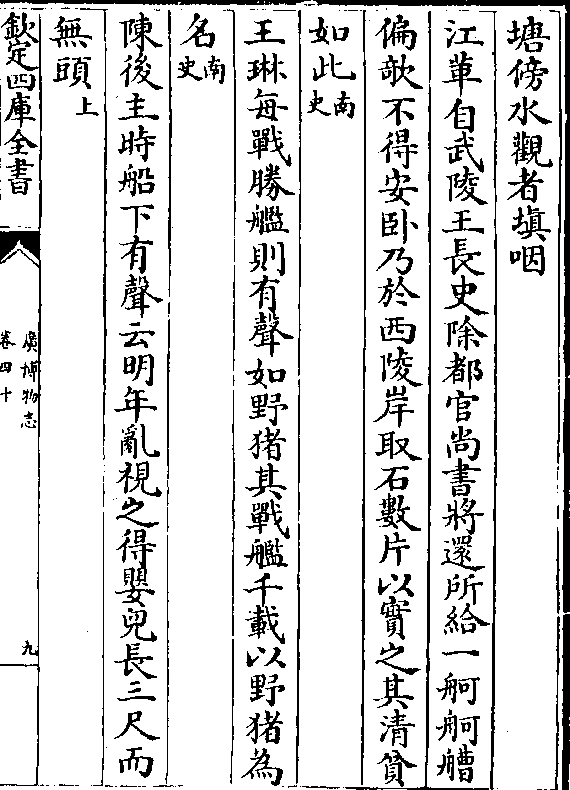 塘傍水觀者填咽
江革自武陵王長史除都官尚書將還所給一舸舸艚
偏欹不得安卧乃於西陵岸取石數片以實之其清貧
如此南史
王琳每戰勝艦則有聲如野猪其戰艦千載以野猪為
名南史
陳後主時船下有聲云明年亂視之得嬰兒長三尺而
無頭上
欽定四庫全書
廣博物志
卷四十
九